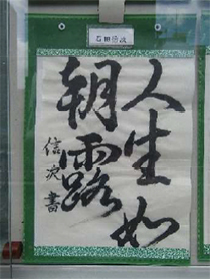 人生如
朝露
信次書